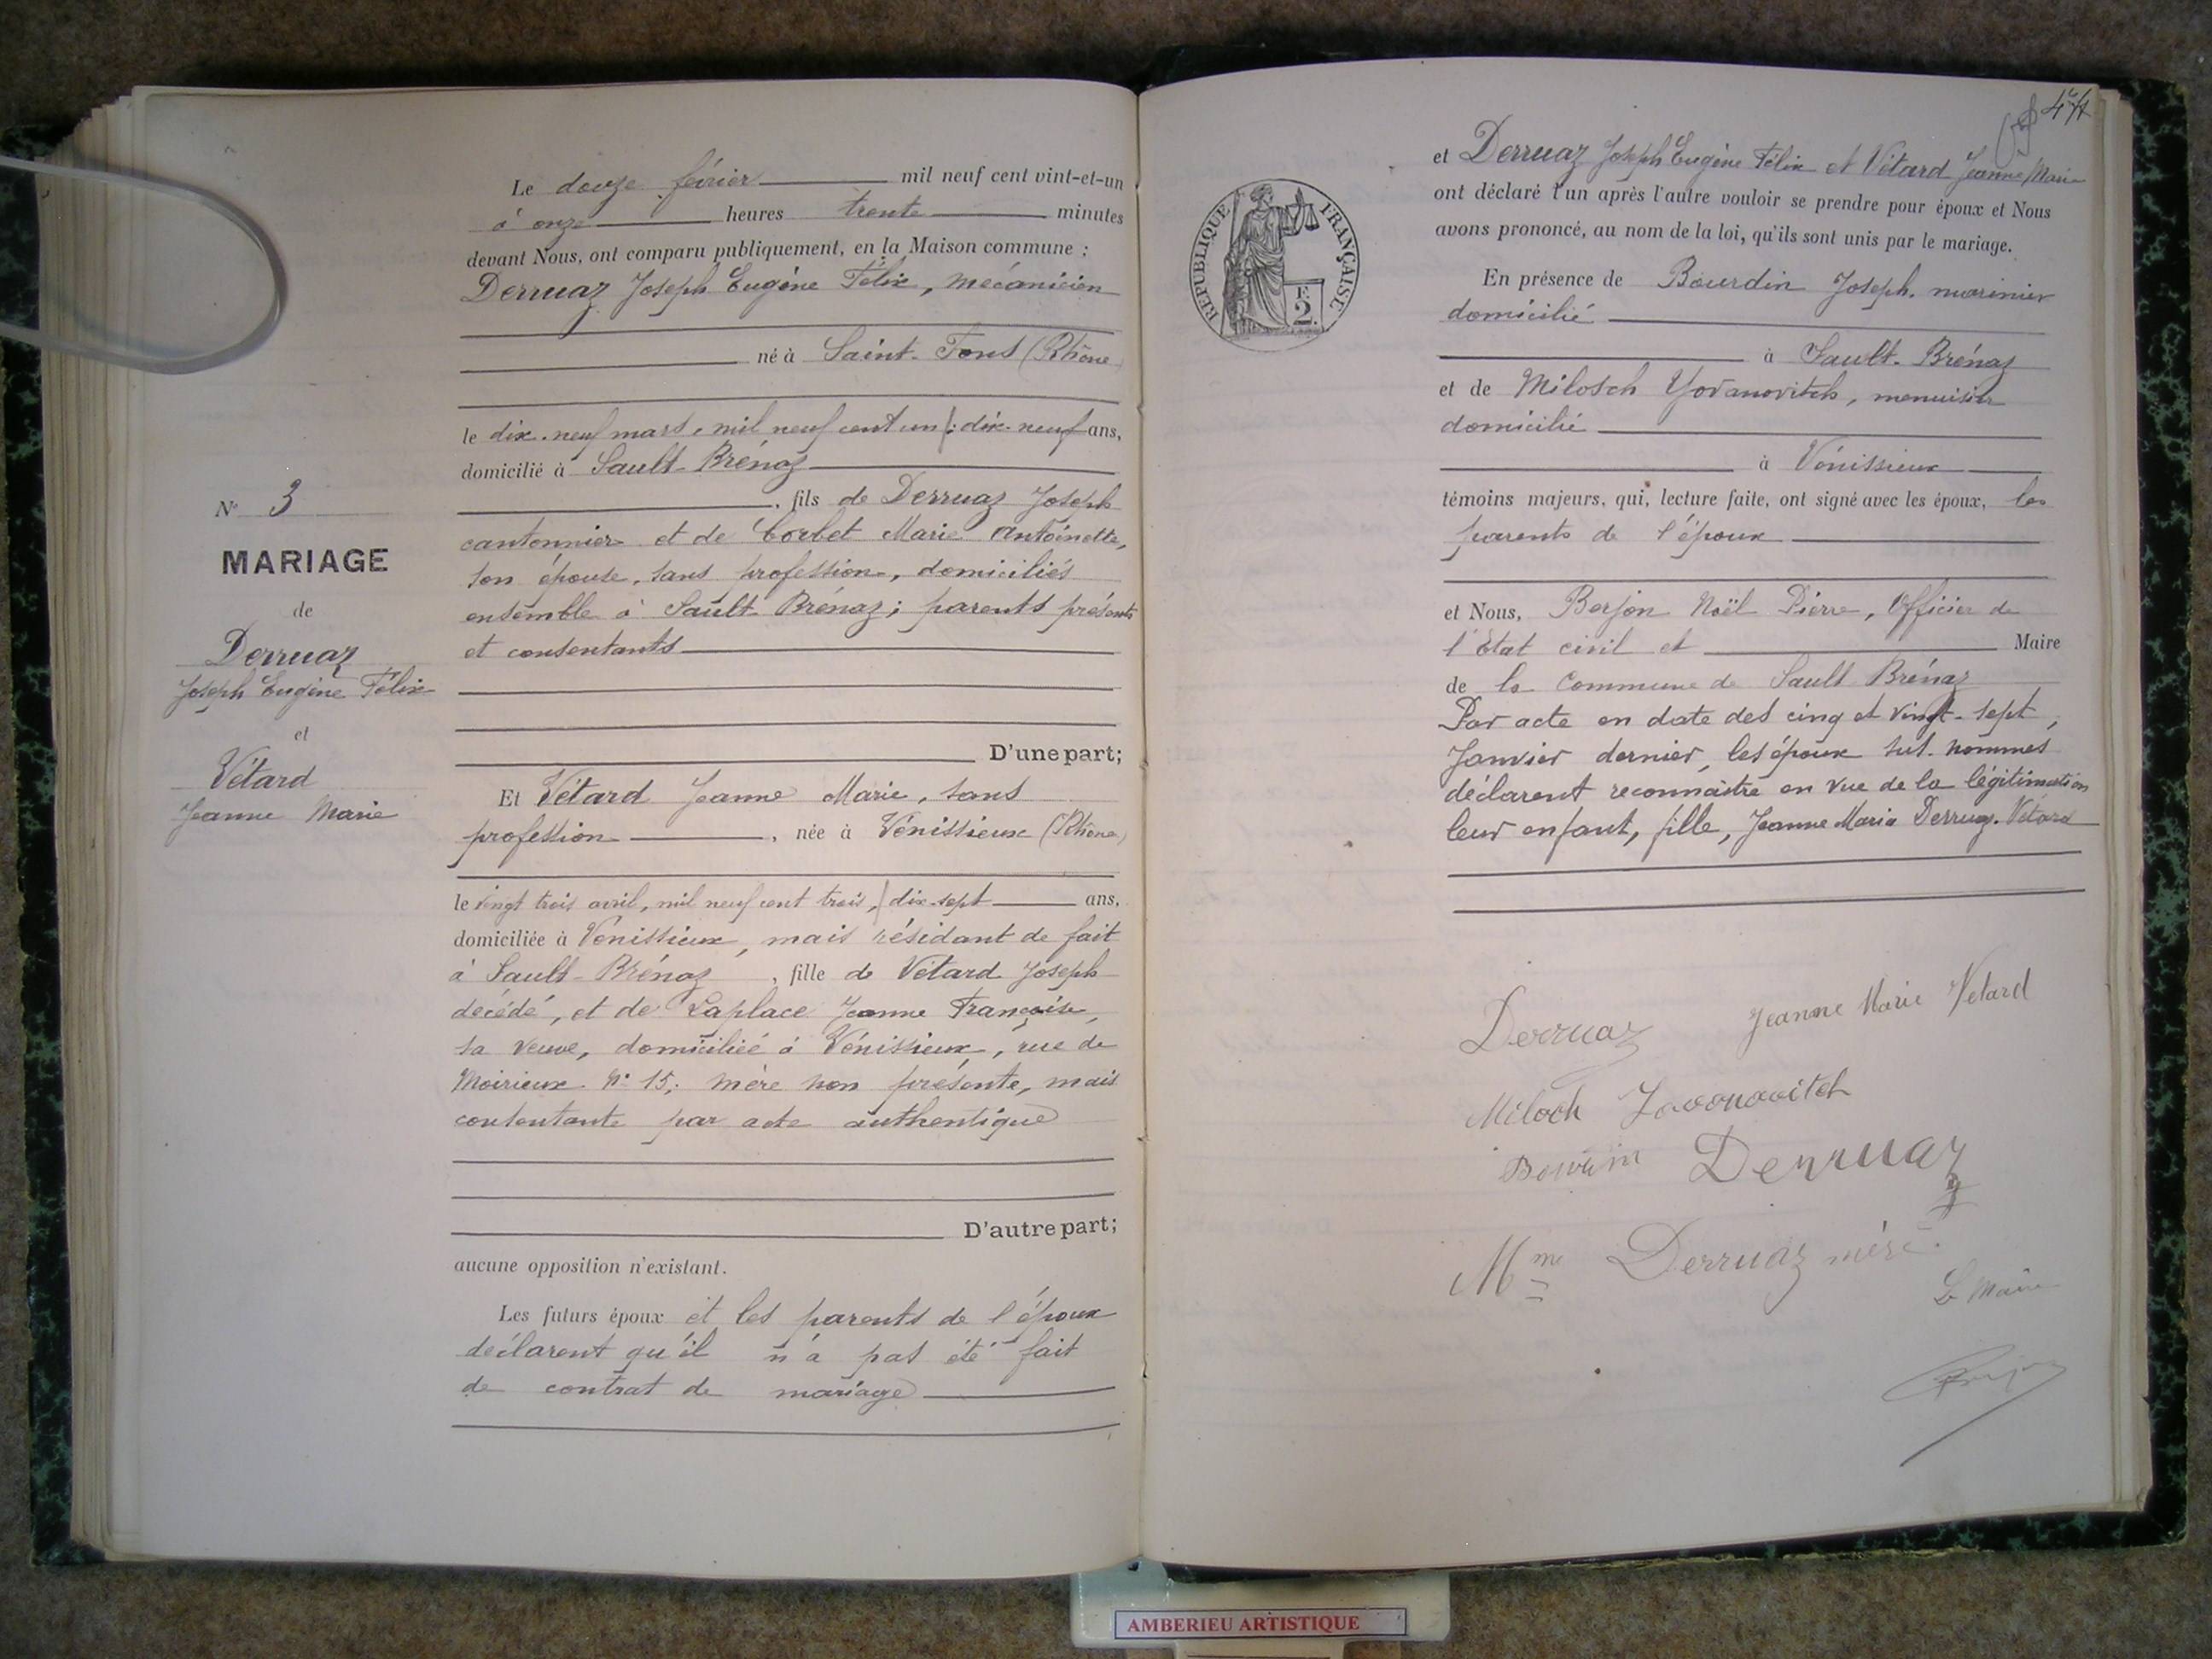 N° 3
MARIAGE
de
Derruaz
Joseph Eugène Félix
et
Vétard
Jeanne Marie
Le douze février mil neuf cent vint-et-un
à onze heures trente minutes
devant Nous, ont comparu publiquement, en la Maison commune :
Derruaz Joseph Eugène Félix, mécanicien
né à Saint-Fons (Rhône)
le dix-neuf mars, mil neuf cent un, dix-neuf ans,
domicilié à Sault-Brénaz
, fils de Derruaz Joseph
cantonnier et de Corbet Marie Antoinette,
son épouse, sans profession, domiciliés
ensemble à Sault-Brénaz ; parents présents
et consentants
D'une part;
Et Vétard Jeanne Marie, sans
profession , née à Vénissieux (Rhône)
le vingt trois avril, mil neuf cent trois, dix-sept ans,
domiciliée à Vénissieux, mais résidant de fait
à Sault-Brénaz , fille de Vétard Joseph
décédé, et de Laplace Jeanne Françoise,
sa veuve, domiciliée à Vénissieux, rue de
Moirieux N° 15; mère non présente, mais
consentante par acte authentique
D'autre part;
aucune opposition n'existant.
Les futurs époux et les parents de l'époux
déclarent qu'il n'a pas été fait
de contrat de mariage
RÉPUBLIQUE FRANÇAISE
F.
2.
et Derruaz Joseph Eugène Félix et Vétard Jeanne Marie
ont déclaré l'un après l'autre vouloir se prendre pour époux et Nous
avons prononcé, au nom de la loi, qu'ils sont unis par le mariage.
En présence de Bourdin Joseph, marinier
domicilié
à Sault-Brénaz
et de Milosch Yovanovitch, menuisier
domicilié
à Vénissieux
témoins majeurs, qui, lecture faite, ont signé avec les époux, les
parents de l'époux
et Nous, Berjon Noël Pierre, Officier de
l'Etat civil et Maire
de la Commune de Sault-Brénaz
Par acte en date des cinq et vingt-sept,
Janvier dernier, les époux sus-nommés
déclarent reconnaître en vue de la légitimation
leur enfant, fille, Jeanne Maria Derruaz-Vétard
Derruaz Jeanne Marie Vetard
Miloch Jovonovitch
Derruaz
Mme Derruaz mère.
Le Maire
AMBERIEU ARTISTIQUE